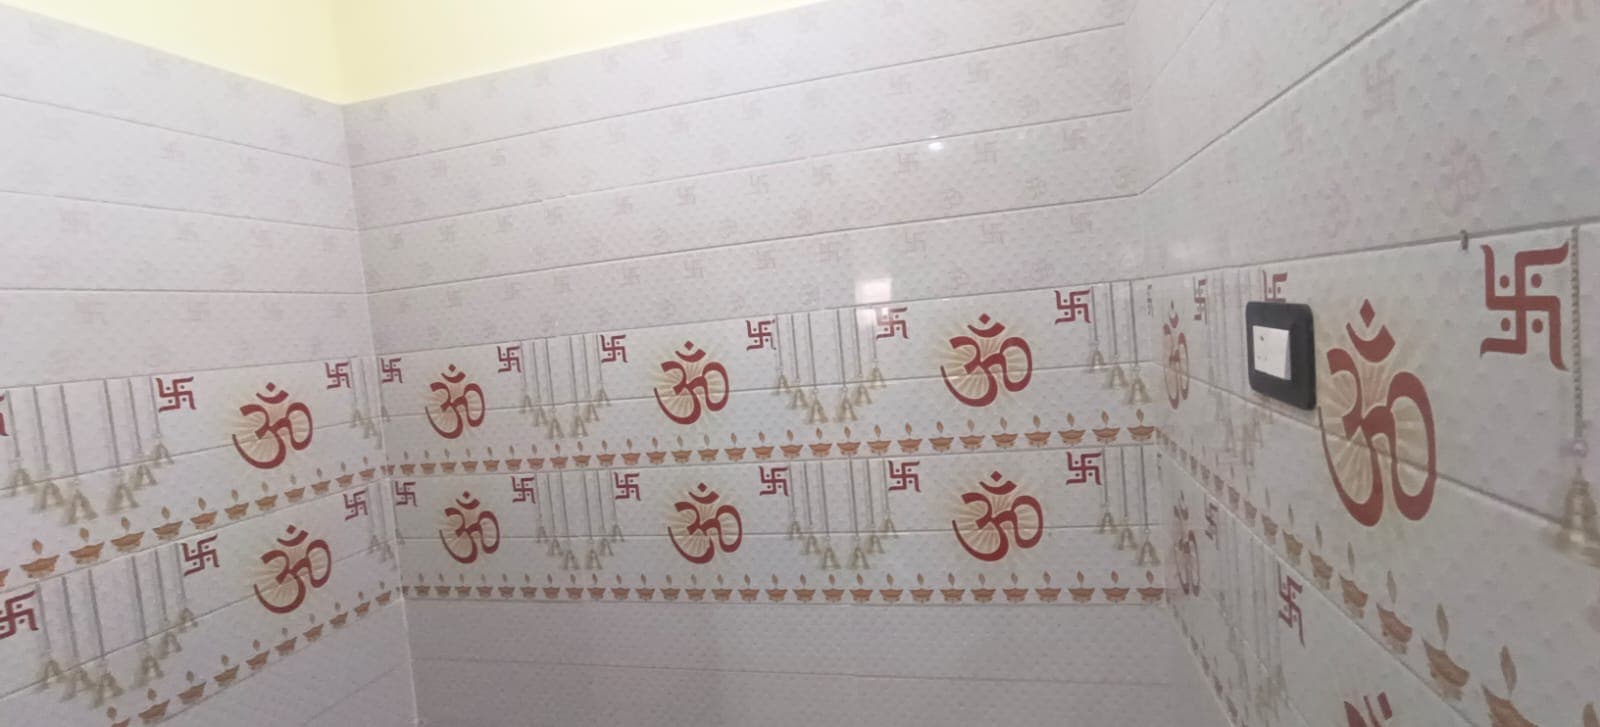 ॐ ॐ ॐ ॐ ॐ ॐ
ॐ ॐ ॐ ॐ ॐ